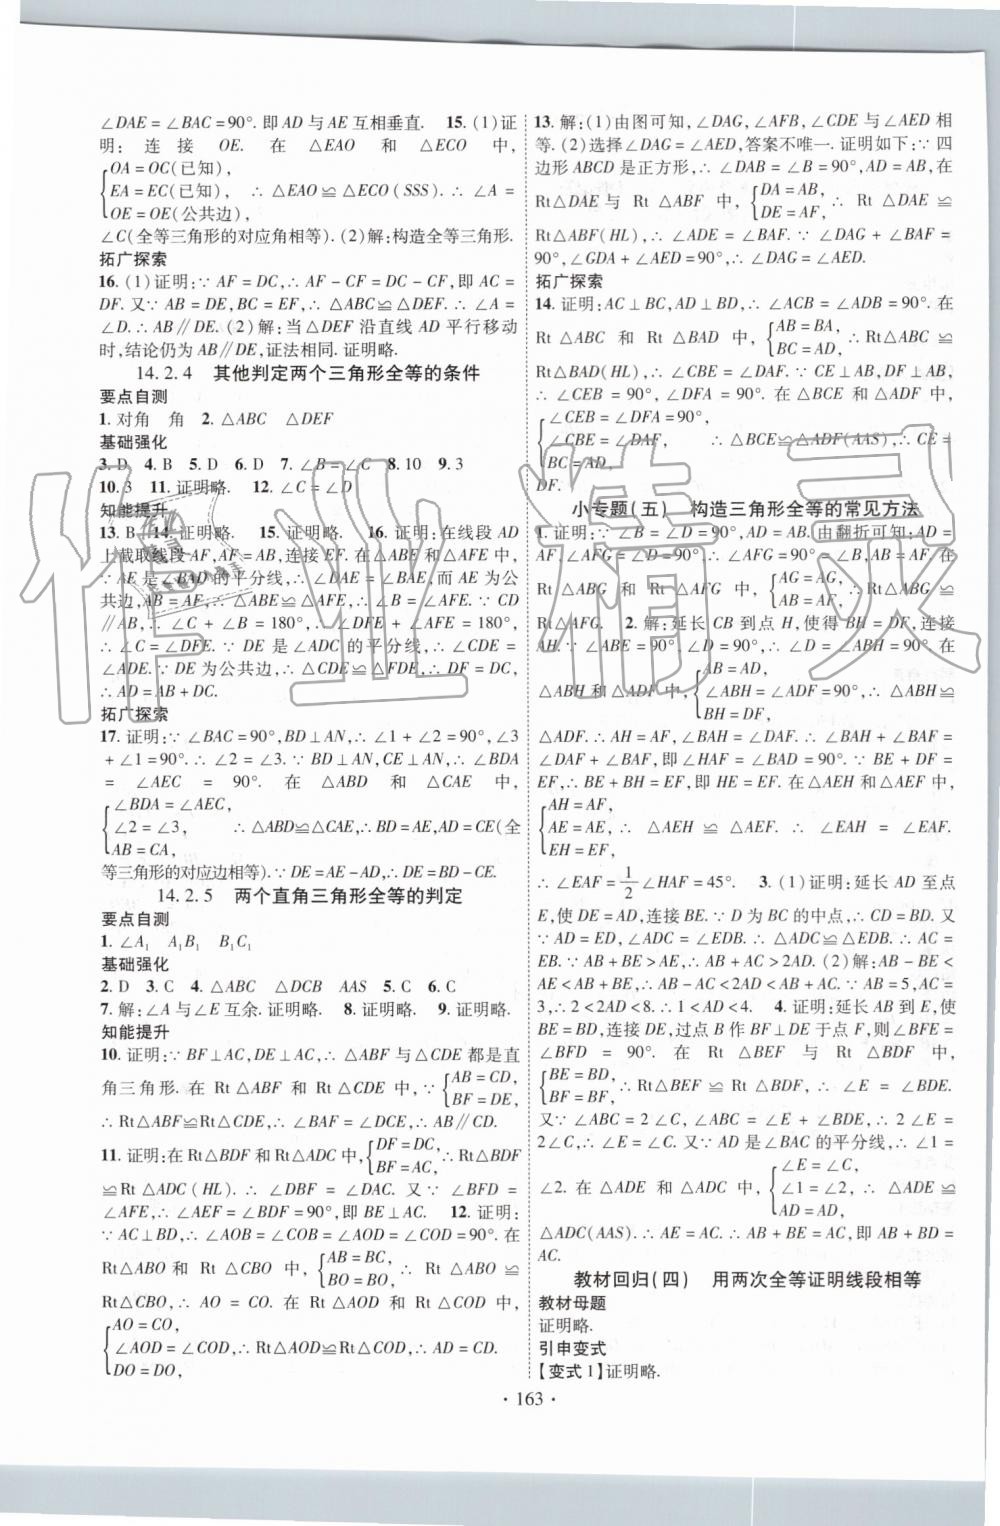 ∠DAE=∠BAC=90°.即AD与AE互相垂直. 15.(1)证
明:连接OE.在△EAO和△ECO中,
OA=OC(已知),
EA=EC(已知), ∴△EAO≌△ECO(SSS).∴∠A=
OE=OE(公共边),
∠C(全等三角形的对应角相等).(2)解:构造全等三角形.
拓广探索
16.(1)证明:∵AF=DC,∴AF-CF=DC-CF,即AC=
DF.又∵AB=DE,BC=EF,∴△ABC≌△DEF.∴∠A=
∠D.∴AB∥DE.(2)解:当△DEF沿直线AD平行移动
时,结论仍为AB∥DE,证法相同.证明略.
14.2.4 其他判定两个三角形全等的条件
要点自测
1.对角 角 2.△ABC △DEF
基础强化
3.D 4.B 5.D 6.D 7.∠B=∠C 8.10 9.3
10.3 11.证明略. 12.∠C=∠D
知能提升
13.B 14.证明略. 15.证明略. 16.证明:在线段AD
上截取线段AF,AF=AB,连接EF.在△ABE与△AFE中,
∵AE是∠BAD的平分线,∴∠DAE=∠BAE,而AE为公
共边,AB=AF,∴△ABE≌△AFE,∴∠B=∠AFE.∵CD
∥AB,∴∠C+∠B=180°,∴∠DFE+∠AFE=180°,
∴∠C=∠DFE.∵DE是∠ADC的平分线,∴∠CDE=
∠ADE.∵DE为公共边,∴△CDE≌△FDE,∴DF=DC,
∴AD=AB+DC.
拓广探索
17.证明:∵∠BAC=90°,BD⊥AN,∴∠1+∠2=90°,∠3
+∠1=90°.∴∠2=∠3.∵BD⊥AN,CE⊥AN,∴∠BDA
=∠AEC=90°.在△ABD和△CAE中,
∠BDA=∠AEC,
∠2=∠3, ∴△ABD≌△CAE,∴BD=AE,AD=CE(全
AB=CA,
等三角形的对应边相等).∵DE=AE-AD,∴DE=BD-CE.
14.2.5 两个直角三角形全等的判定
要点自测
1.∠A₁ A₁B₁ B₁C₁
基础强化
2.D 3.C 4.△ABC △DCB AAS 5.C 6.C
7.解:∠A与∠E互余.证明略. 8.证明略. 9.证明略.
知能提升
10.证明:∵BF⊥AC,DE⊥AC,∴△ABF与△CDE都是直
角三角形.在Rt△ABF和Rt△CDE中,∵{AB=CD, BF=DE,
∴Rt△ABF≌Rt△CDE,∴∠BAF=∠DCE,∴AB∥CD.
11.证明:在Rt△BDF和Rt△ADC中,{DF=DC, BF=AC,∴Rt△BDF
≌Rt△ADC(HL).∴∠DBF=∠DAC.又∵∠BFD=
∠AFE,∴∠AEF=∠BDF=90°,即BE⊥AC. 12.证明:
∵AC⊥BD,∴∠AOB=∠COB=∠AOD=∠COD=90°.在
Rt△ABO和Rt△CBO中,{AB=BC, BO=BO,∴Rt△ABO≌
Rt△CBO,∴AO=CO.在Rt△AOD和Rt△COD中,
AO=CO,
∠AOD=∠COD,∴Rt△AOD≌Rt△COD,∴AD=CD.
DO=DO,
13.解:(1)由图可知,∠DAG,∠AFB,∠CDE与∠AED相
等.(2)选择∠DAG=∠AED,答案不唯一.证明如下:∵四
边形ABCD是正方形,∴∠DAB=∠B=90°,AD=AB,在
Rt△DAE与Rt△ABF中,{DA=AB, DE=AF,∴Rt△DAE≌
Rt△ABF(HL),∴∠ADE=∠BAF.∵∠DAG+∠BAF=
90°,∠GDA+∠AED=90°,∴∠DAG=∠AED.
拓广探索
14.证明:AC⊥BC,AD⊥BD,∴∠ACB=∠ADB=90°.在
Rt△ABC和Rt△BAD中,{AB=BA, BC=AD,∴Rt△ABC≌
Rt△BAD(HL),∴∠CBE=∠DAF.∵CE⊥AB,DF⊥AB,
∴∠CEB=90°,∠DFA=90°.在△BCE和△ADF中,
∠CEB=∠DFA=90°,
∠CBE=∠DAF, ∴△BCE≌△ADF(AAS),∴CE=
BC=AD,
DF.
小专题(五) 构造三角形全等的常见方法
1.证明:∵∠B=∠D=90°,AD=AB.由翻折可知:AD=
AF,∠AFE=∠D=90°,∴∠AFG=90°=∠B,AB=AF.在
Rt△ABG和Rt△AFG中,{AG=AG, AB=AF,∴Rt△ABG≌
Rt△AFG. 2.解:延长CB到点H,使得BH=DF,连接
AH.∵∠ABE=90°,∠D=90°,∴∠ABH=∠D=90°.在
△ABH和△ADF中,{AB=AD, ∠ABH=∠ADF=90°, BH=DF,∴△ABH≌
△ADF.∴AH=AF,∠BAH=∠DAF.∴∠BAH+∠BAF=
∠DAF+∠BAF,即∠HAF=∠BAD=90°.∵BE+DF=
EF,∴BE+BH=EF,即HE=EF.在△AEH和△AEF中,
AH=AF,
AE=AE,∴△AEH≌△AEF.∴∠EAH=∠EAF.
EH=EF,
∴∠EAF=1/2∠HAF=45°. 3.(1)证明:延长AD至点
E,使DE=AD,连接BE.∵D为BC的中点,∴CD=BD.又
∵AD=ED,∠ADC=∠EDB.∴△ADC≌△EDB.∴AC=
EB.∵AB+BE>AE,∴AB+AC>2AD.(2)解:AB-BE<
AE<AB+BE,∴AB-AC<2AD<AB+AC.∵AB=5,AC=
3,∴2<2AD<8.∴1<AD<4. 4.证明:延长AB到E,使
BE=BD,连接DE,过点B作BF⊥DE于点F,则∠BFE=
∠BFD=90°.在Rt△BEF与Rt△BDF中,
{BE=BD, BF=BF,∴Rt△BEF≌Rt△BDF,∴∠E=∠BDE.
又∵∠ABC=2∠C,∠ABC=∠E+∠BDE,∴2∠E=
2∠C.∴∠E=∠C.又∵AD是∠BAC的平分线,∴∠1=
∠2.在△ADE和△ADC中,{∠E=∠C, ∠1=∠2, AD=AD,∴△ADE≌
△ADC(AAS).∴AE=AC.∴AB+BE=AC,即AB+BD=
AC.
教材回归(四) 用两次全等证明线段相等
教材母题
证明略.
引申变式
【变式1】证明略.
·163·
作业精灵